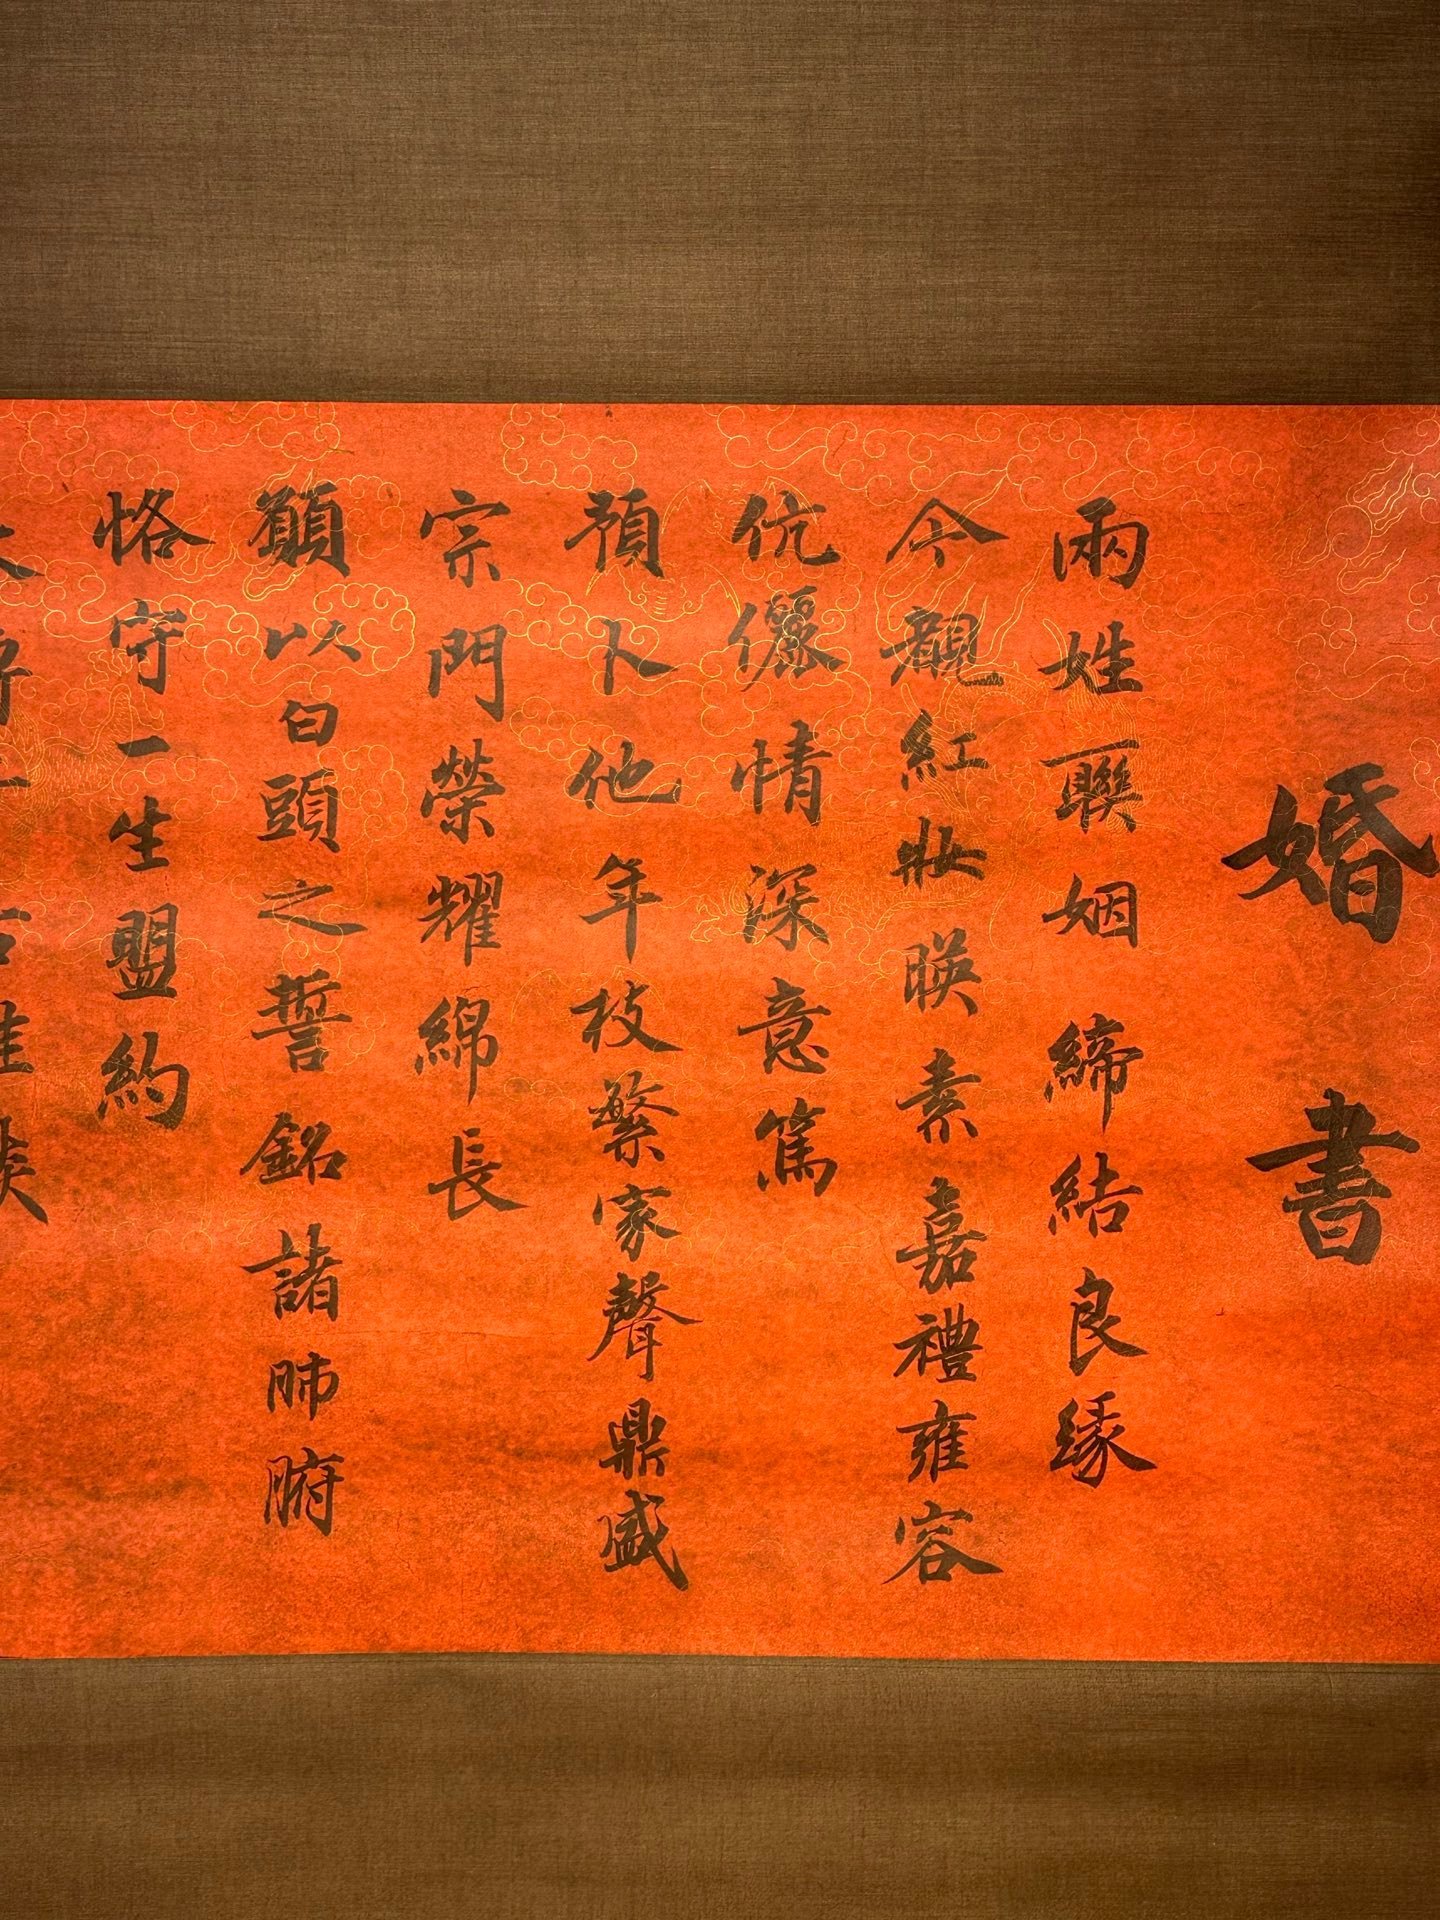 婚書
兩姓聯姻締結良緣
今親紅妝暎素嘉禮雍容
伉儷情深意篤
預卜他年枝繁家聲鼎盛
宗門榮耀綿長
願以白頭之誓銘諸肺腑
恪守一生盟約